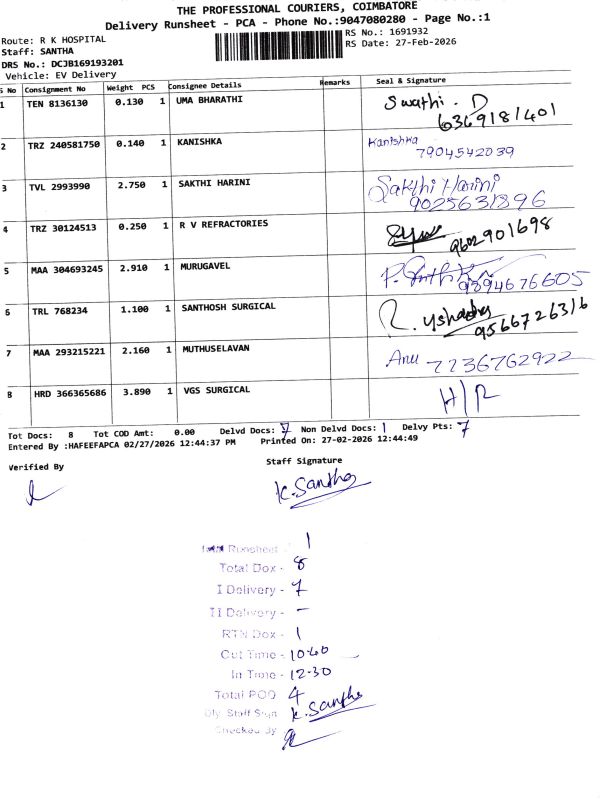 THE PROFESSIONAL COURIERS, COIMBATORE
Delivery Runsheet - PCA - Phone No.:9047080280 - Page No.:1
Route: R K HOSPITAL
RS No.: 1691932
Staff: SANTHA
RS Date: 27-Feb-2026
DRS No.: DCJB169193201
Vehicle: EV Delivery
S No Consignment No Weight PCS Consignee Details Remarks Seal & Signature
1 TEN 8136130 0.130 1 UMA BHARATHI Swathi. D
6369181401
2 TRZ 240581750 0.140 1 KANISHKA Kanishka
7904542039
3 TVL 2993990 2.750 1 SAKTHI HARINI Sakthi Harini
9025631896
4 TRZ 30124513 0.250 1 R V REFRACTORIES 9602901698
5 MAA 304693245 2.910 1 MURUGAVEL
9894676605
6 TRL 768234 1.100 1 SANTHOSH SURGICAL R.
9566726316
7 MAA 293215221 2.160 1 MUTHUSELAVAN Anu 7236762922
8 HRD 366365686 3.890 1 VGS SURGICAL H/R
Tot Docs: 8 Tot COD Amt: 0.00 Delvd Docs: 7 Non Delvd Docs: 1 Delvy Pts: 7
Entered By :HAFEEFAPCA 02/27/2026 12:44:37 PM Printed On: 27-02-2026 12:44:49
Verified By
Staff Signature
K. Santha
Runsheet - 1
Total Dox - 8
I Delivery - 7
II Delivery - -
RTN Dox - 1
Out Time - 10.40
In Time - 12.30
Total POD 4
Dly. Staff Sign K. Santha
Checked By